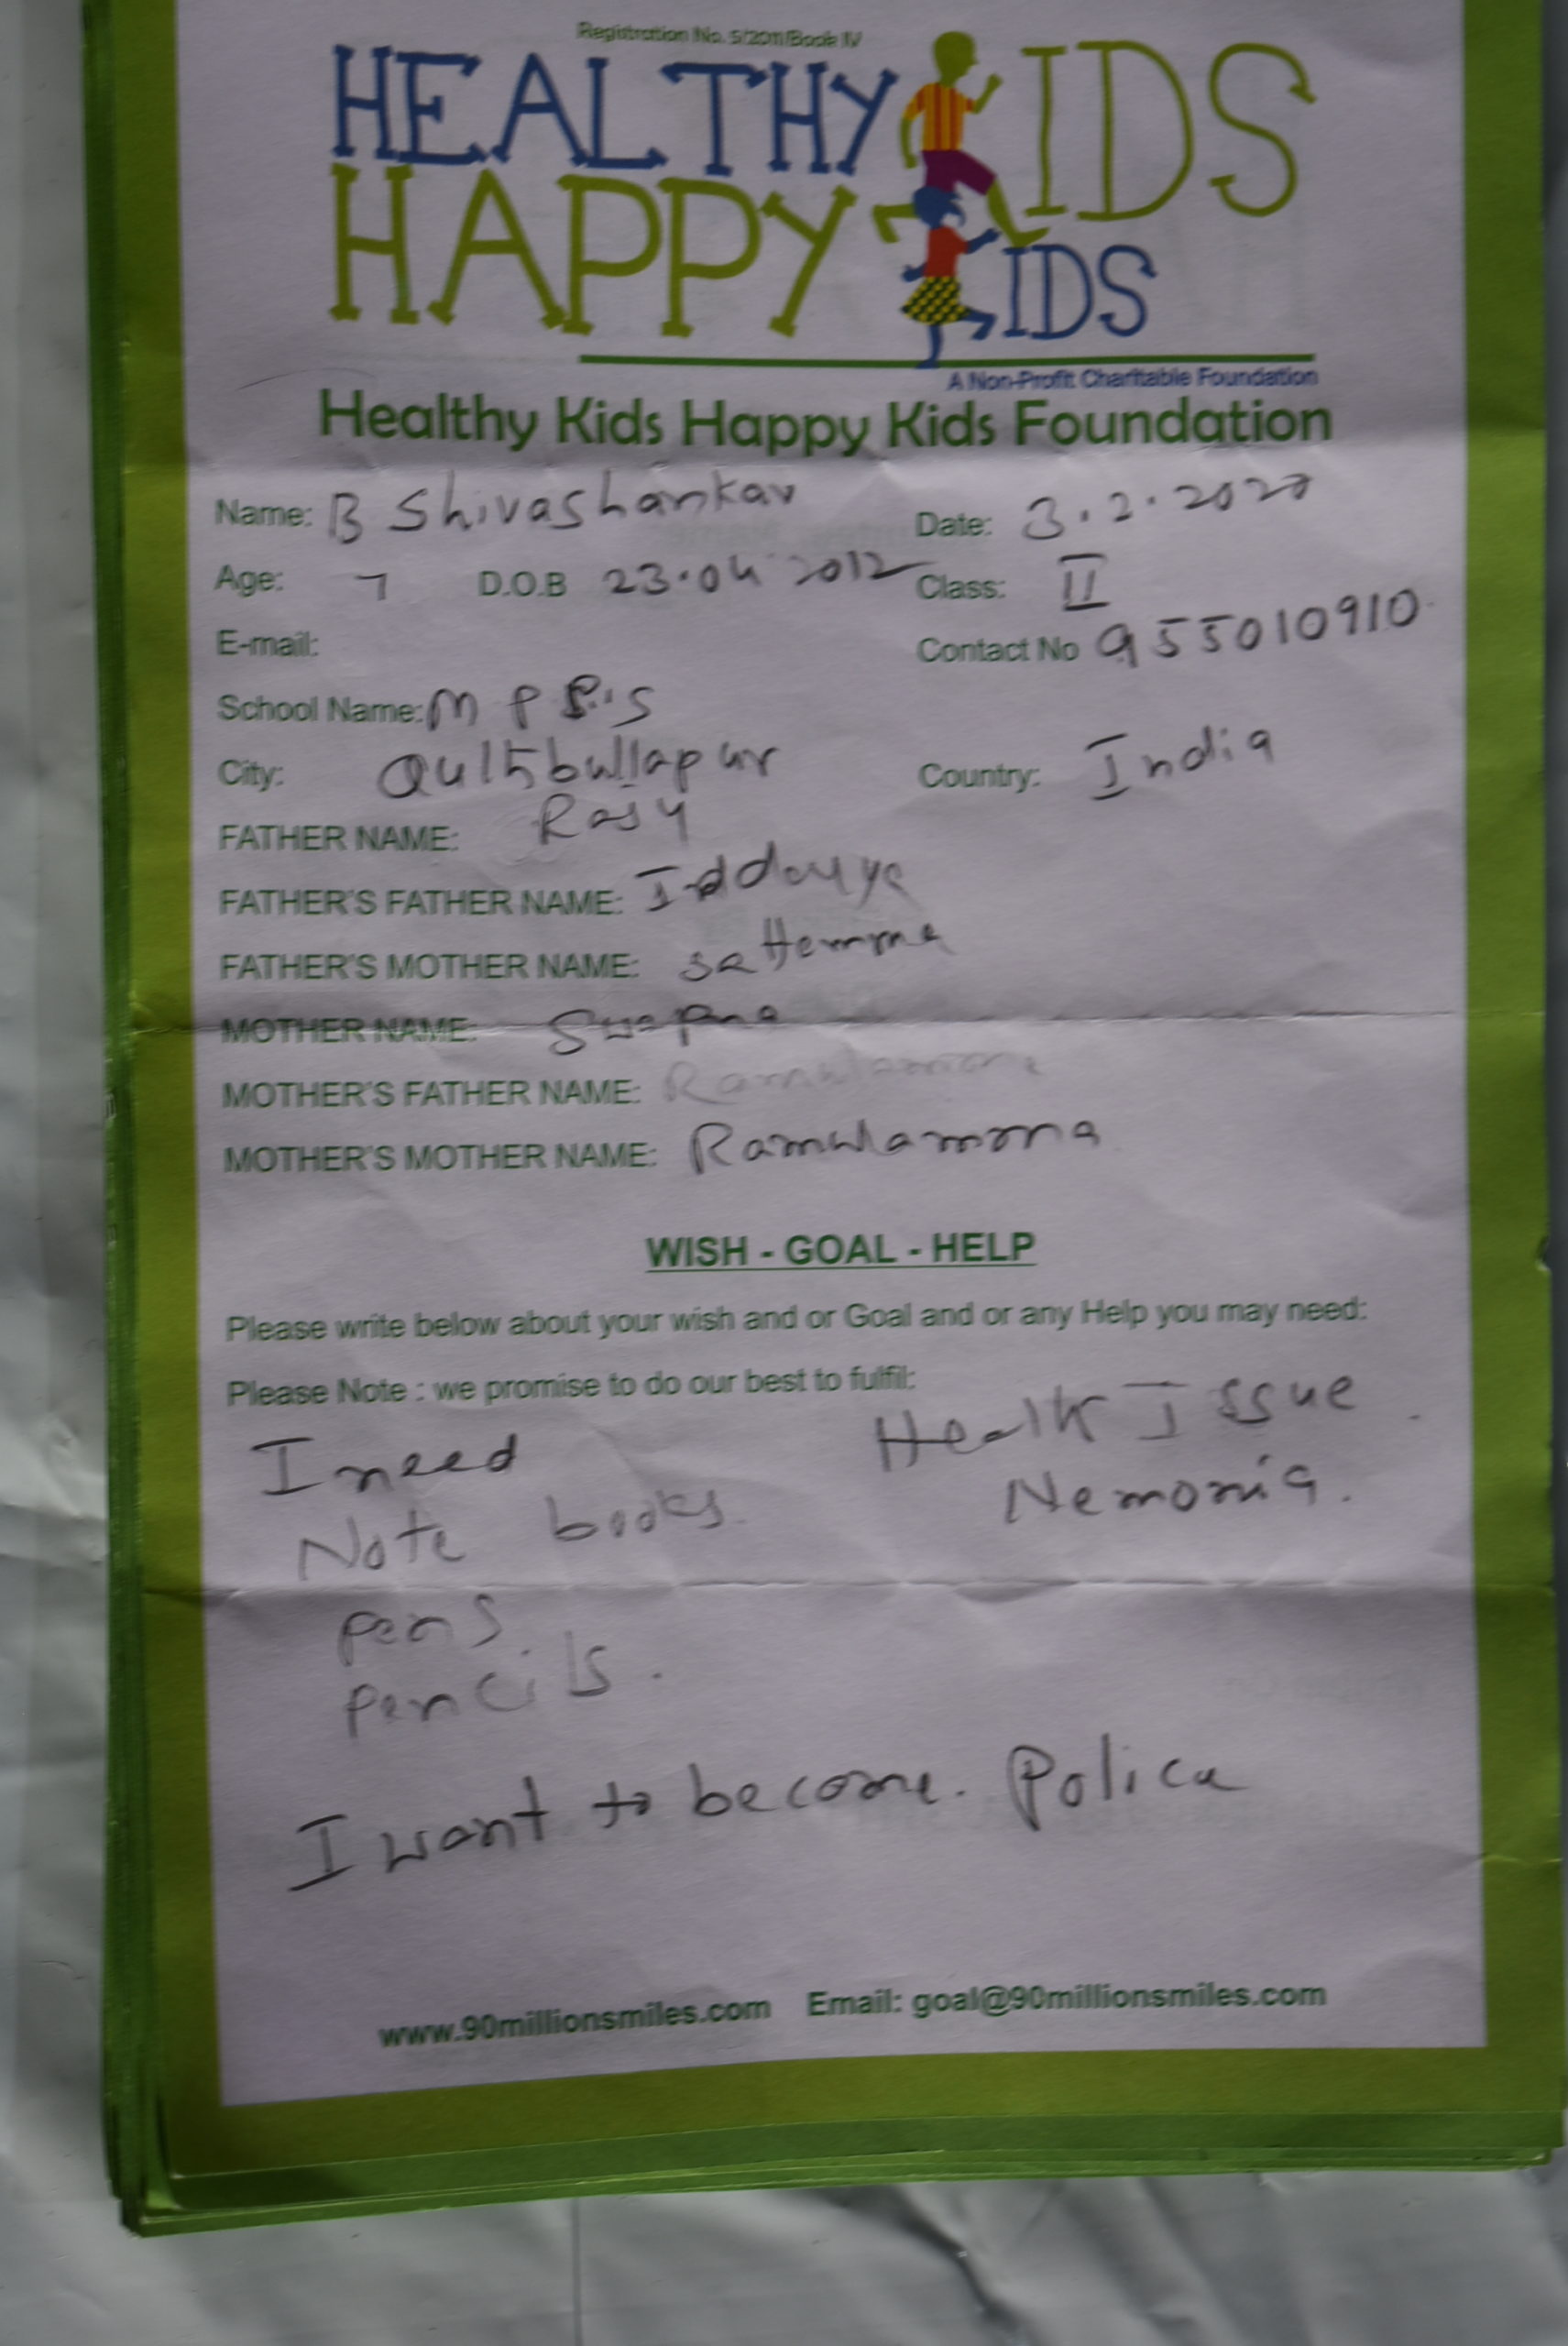 Registration No. 5/2011/Book IV
HEALTHY KIDS
HAPPY KIDS
A Non-Profit Charitable Foundation
Healthy Kids Happy Kids Foundation
Name: B Shivashankar Date: 3.2.2020
Age: 7 D.O.B 23.04.2012 Class: II
E-mail: Contact No 955010910
School Name: M P P.S
City: Qulthbullapur Country: India
FATHER NAME: Rajy
FATHER'S FATHER NAME:
FATHER'S MOTHER NAME: sattemma
MOTHER NAME: Swapna
MOTHER'S FATHER NAME:
MOTHER'S MOTHER NAME: Ramulamma
WISH - GOAL - HELP
Please write below about your wish and or Goal and or any Help you may need:
Please Note : we promise to do our best to fulfil:
I need Health Issue
Note books. Nemonia.
pens
pencils.
I want to become. Police
www.90millionsmiles.com Email: goal@90millionsmiles.com